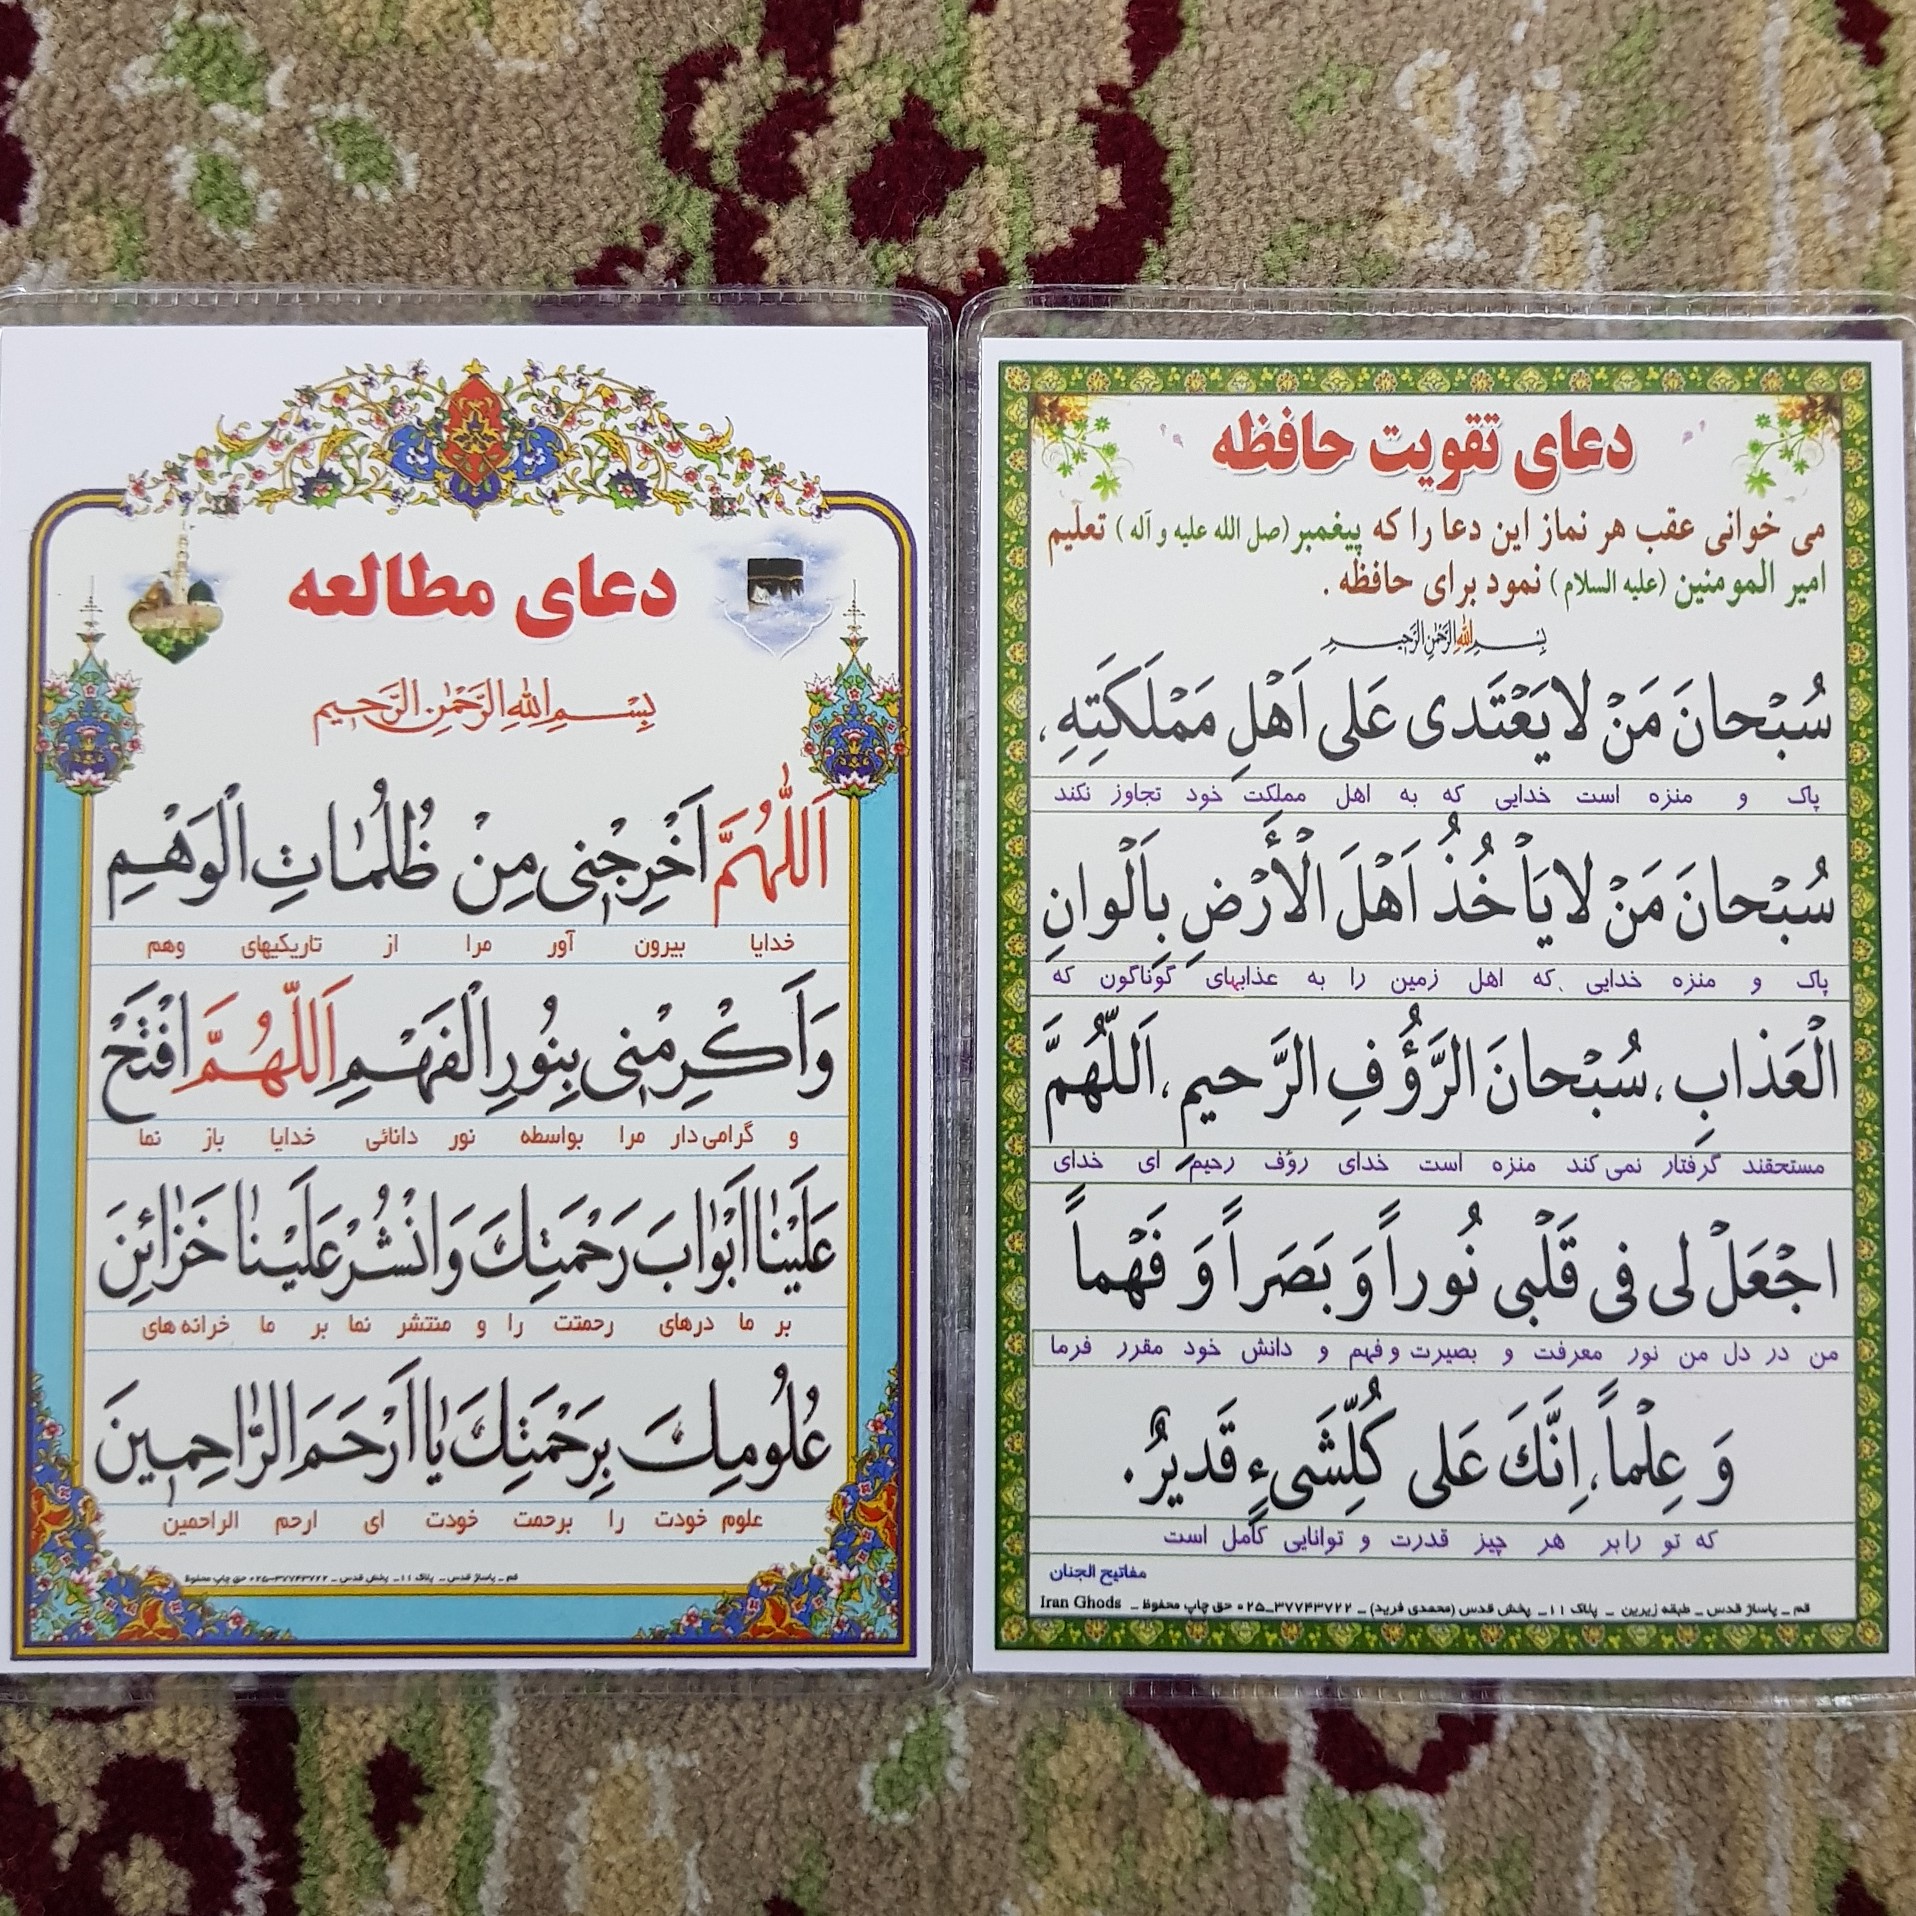 دعای تقویت حافظه
می خوانی عقب هر نماز این دعا را که پیغمبر (صل الله علیه و آله) تعلیم
امیر المومنین (علیه السلام) نمود برای حافظه .
بِسْمِ اللهِ الرَّحْمٰنِ الرَّحیمِ
سُبْحانَ مَنْ لا یَعْتَدی عَلی اَهْلِ مَمْلَکَتِهِ،
پاک و منزه است خدایی که به اهل مملکت خود تجاوز نکند
سُبْحانَ مَنْ لا یَأْخُذُ اَهْلَ الْأَرْضِ بِاَلْوانِ
پاک و منزه خدایی که اهل زمین را به عذابهای گوناگون که
الْعَذابِ، سُبْحانَ الرَّؤُفِ الرَّحیمِ، اَللّهُمَّ
مستحقند گرفتار نمی کند منزه است خدای رؤف رحیم ای خدای
اجْعَلْ لی فی قَلْبی نُوراً وَ بَصَراً وَ فَهْماً
من در دل من نور معرفت و بصیرت و فهم و دانش خود مقرر فرما
وَ عِلْماً، اِنَّكَ عَلی کُلِّشَیءٍ قَدیرٌ.
که تو رابر هر چیز قدرت و توانایی کامل است
مفاتیح الجنان
قم _ پاساژ قدس _ طبقه زیرین _ پلاک ۱۱_ پخش قدس (محمدی فرید) _ ۳۷۷۴۳۷۲۲_۰۲۵ حق چاپ محفوظ _ Iran Ghods
دعای مطالعه
بِسْمِ اللهِ الرَّحْمٰنِ الرَّحیمِ
اَللّٰهُمَّ اَخْرِجْنی مِنْ ظُلُمٰاتِ الْوَهْمِ
خدایا بیرون آور مرا از تاریکیهای وهم
وَاَکْرِمْنی بِنُورِ الْفَهْمِ اَللّهُمَّ افْتَحْ
و گرامی دار مرا بواسطه نور دانائی خدایا باز نما
عَلَیْنٰا اَبْوٰابَ رَحْمَتِكَ وَانْشُرْ عَلَیْنٰا خَزٰائِنَ
بر ما درهای رحمتت را و منتشر نما بر ما خرانه های
عُلُومِكَ بِرَحْمَتِكَ یٰا اَرْحَمَ الرّٰاحِمینَ
علوم خودت را برحمت خودت ای ارحم الراحمین
قم _ پاساژ قدس _ پلاک ۱۱_ پخش قدس _ ۳۷۷۴۳۷۲۲_۰۲۵ حق چاپ محفوظ